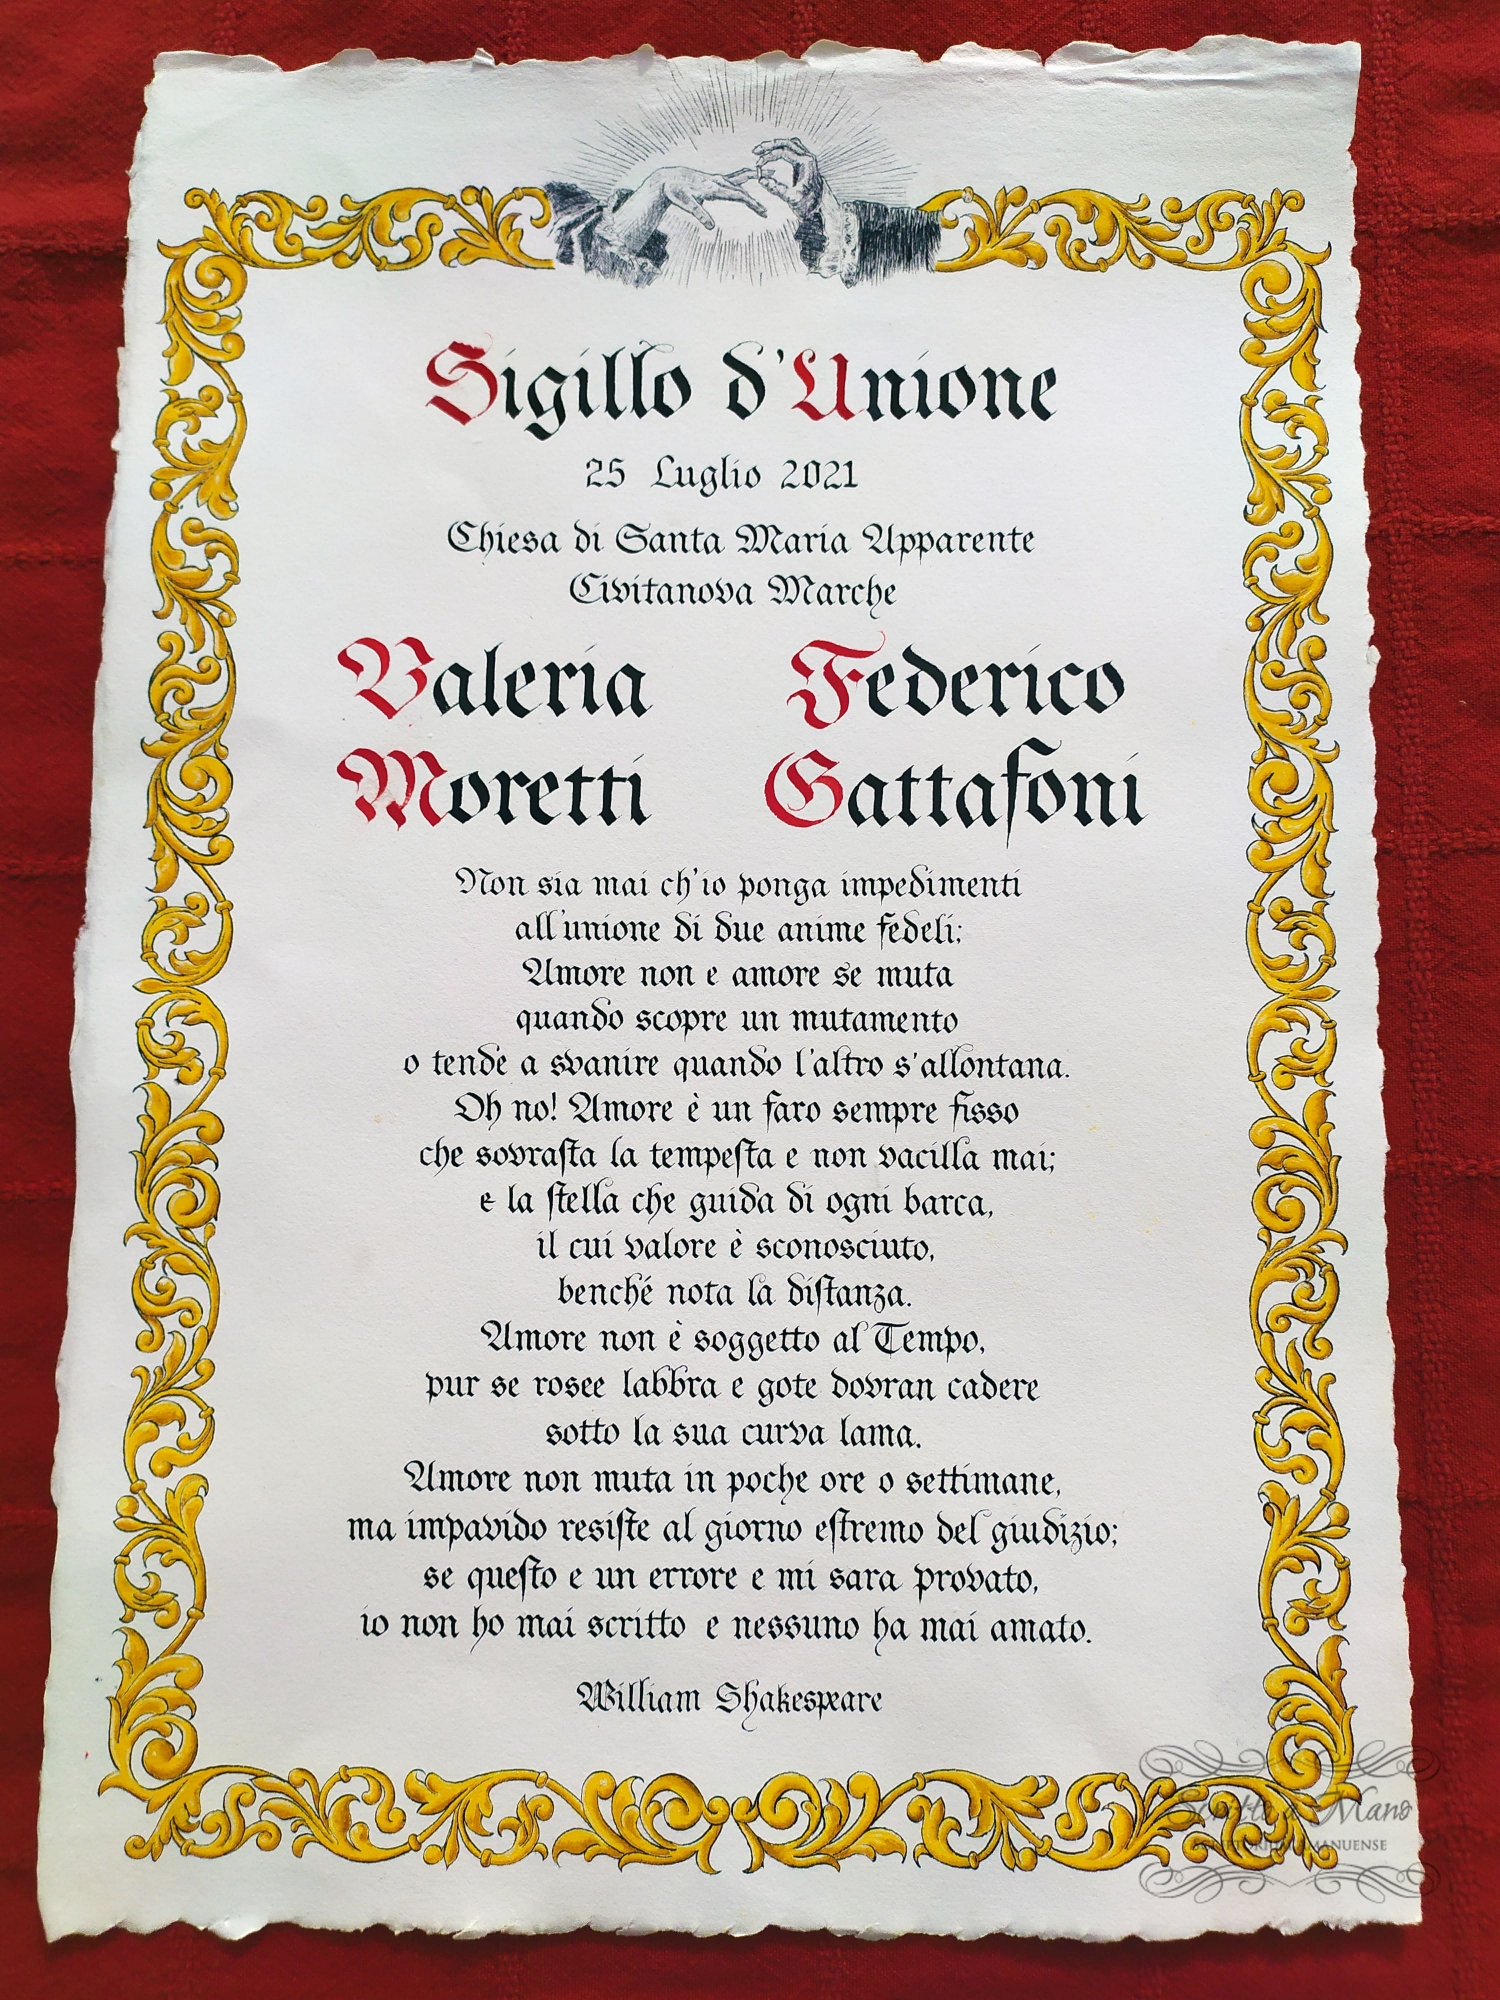 Sigillo d'Unione
25 Luglio 2021
Chiesa di Santa Maria Apparente
Civitanova Marche
Valeria Federico
Moretti Gattafoni
Non sia mai ch'io ponga impedimenti
all'unione di due anime fedeli;
Amore non e amore se muta
quando scopre un mutamento
o tende a svanire quando l'altro s'allontana.
Oh no! Amore è un faro sempre fisso
che sovrasta la tempesta e non vacilla mai;
e la stella che guida di ogni barca,
il cui valore è sconosciuto,
benché nota la distanza.
Amore non è soggetto al Tempo,
pur se rosee labbra e gote dovran cadere
sotto la sua curva lama.
Amore non muta in poche ore o settimane,
ma impavido resiste al giorno estremo del giudizio;
se questo e un errore e mi sara provato,
io non ho mai scritto e nessuno ha mai amato.
William Shakespeare
Scritti a Mano
SCRIPTORIUM AMANUENSE